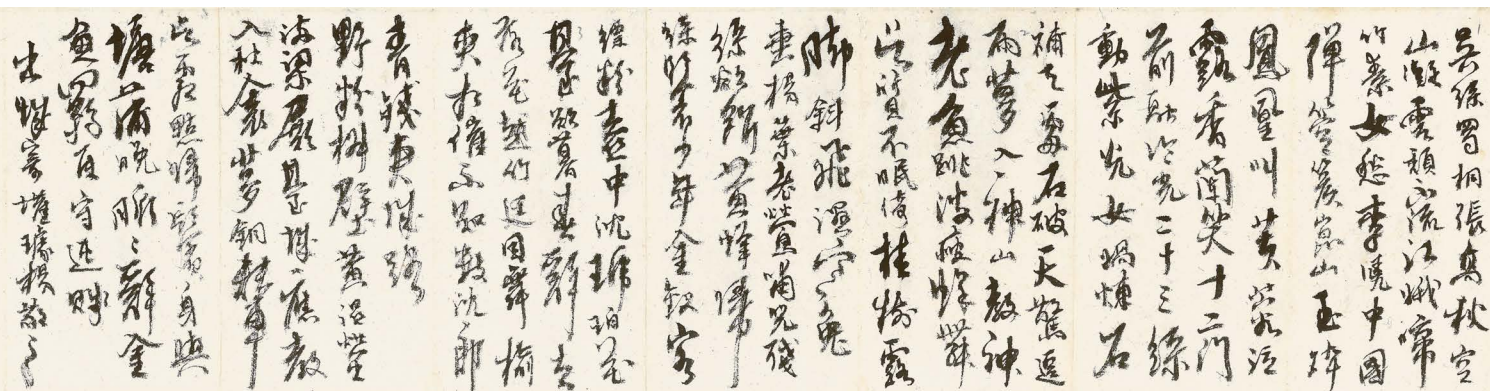 吴絲蜀桐張高秋空
山凝雲頹不流江娥啼
竹素女愁李憑中國
彈箜篌崑山玉碎
鳳凰叫芙蓉泣
露香蘭笑十二門
前融冷光二十三絲
動紫皇女媧煉石
補天處石破天驚逗
雨夢入神山教神
老魚跳波瘦蛟舞
吴質不眠倚桂樹露
脚斜飛濕寒兔
垂楊葉老鶯哺兒殘
絲欲斷黄蜂歸
綠鬢少年金釵客
縹粉壺中沈琥珀花
臺欲暮春辭去
落花起作迴風舞榆
莢相催不知數沈郎
青錢夾城路
野粉椒壁黄濕螢
滿梁殿臺城應教
人秋衾夢銅輦
吴霜點歸鬢身與
塘蒲晚脈〻辭金
魚羈臣守迍賤